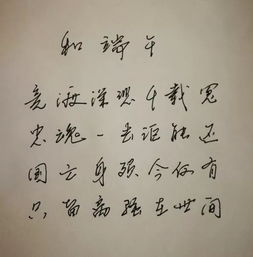 和端午
竞渡深悲千载冤
忠魂一去讵能还
国亡身殒今何有
只留离骚在世间